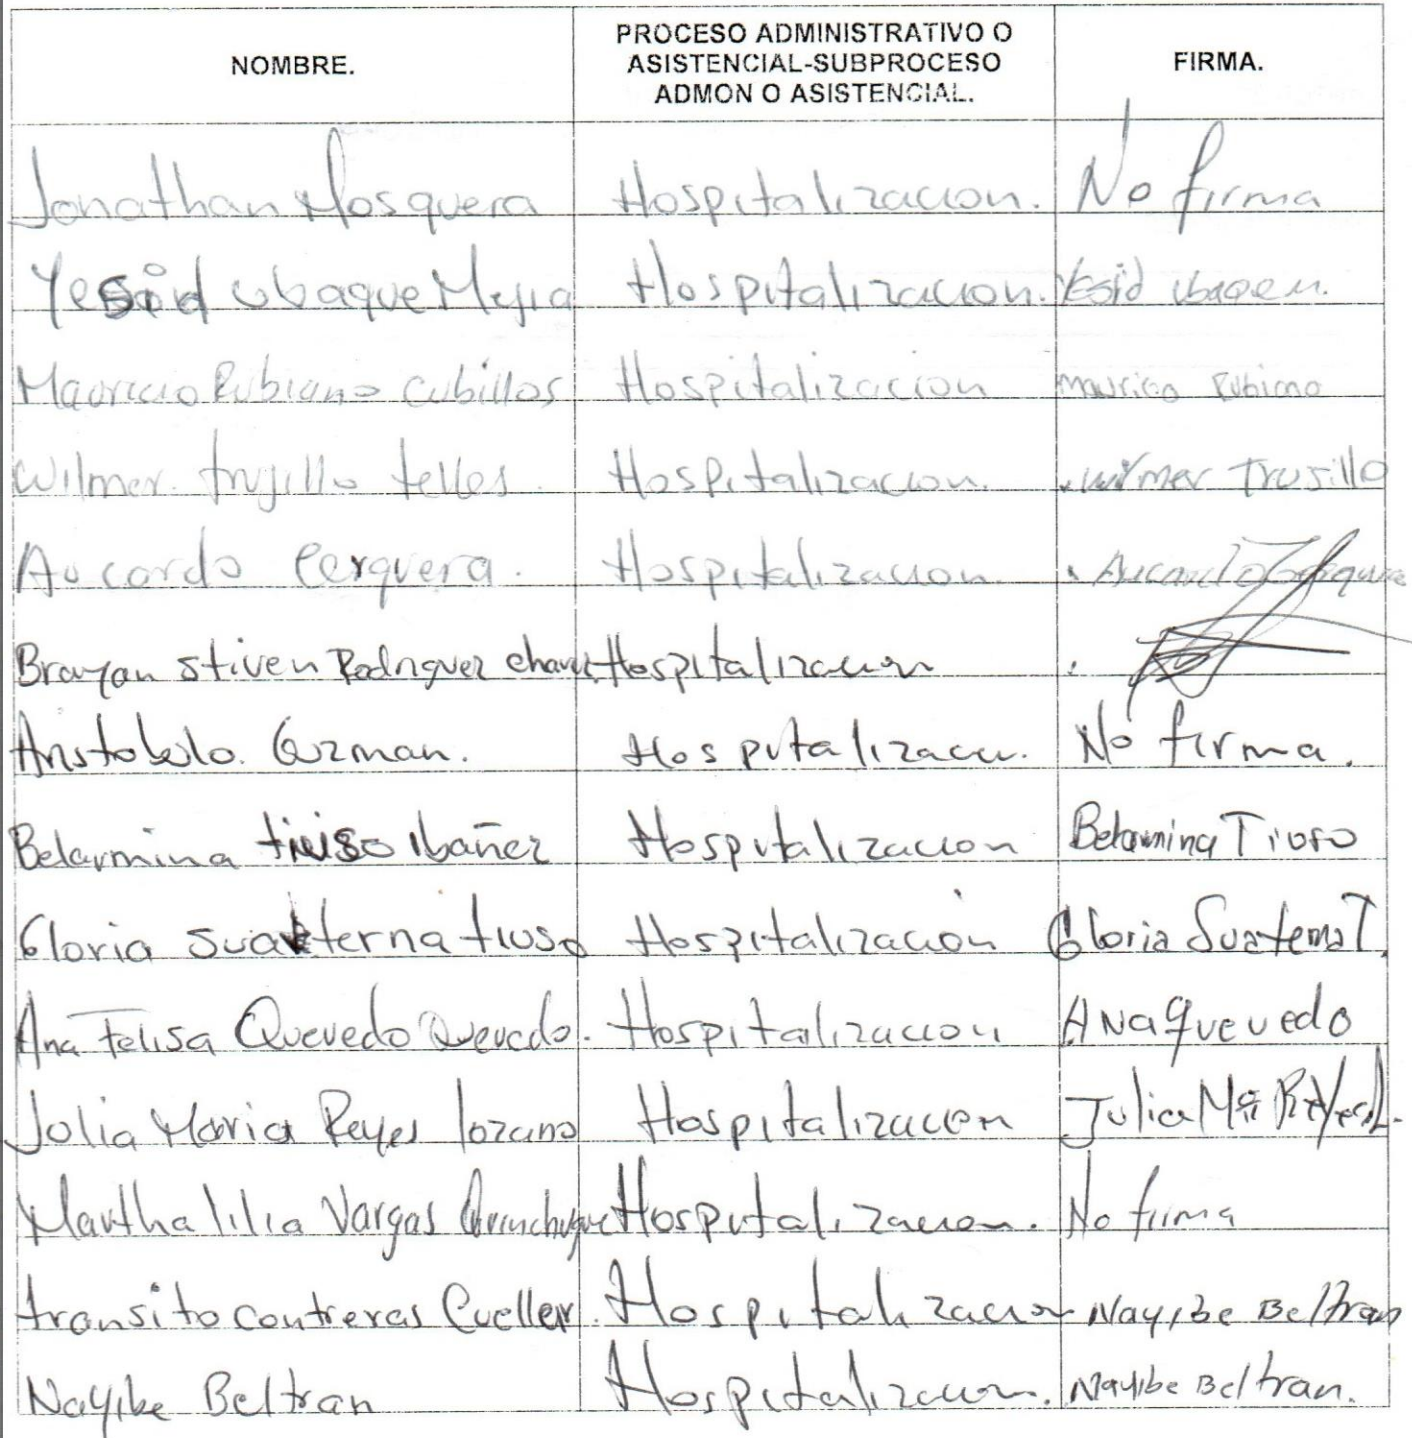 NOMBRE. PROCESO ADMINISTRATIVO O ASISTENCIAL-SUBPROCESO ADMON O ASISTENCIAL. FIRMA.
Jonathan Mosquera Hospitalizacion. No firma
Yesid Ubaque Mejia Hospitalizacion. Yesid Ubaque M.
Mauricio Rubiano Cubillos Hospitalizacion Maurico Rubiano
Wilmer trujillo telles. Hospitalizacion. Wilmer Trusillo
Aucardo Cerquera. Hospitalizacion
Brayan stiven Rodriguez Hospitalizacion
Aristobulo. Guzman. Hospitalizacion. No firma.
Belarmina tiuso Ibañez Hospitalizacion Belarmina Tiuso
Gloria suaterna tiuso Hospitalizacion Gloria Suaterna T.
Ana Felisa Quevedo Quevedo. Hospitalizacion Ana Quevedo
Jolia Maria Reyes lozano Hospitalizacion Julia Mª Reyes L.
Martha lilia Vargas Hospitalizacion. No firma
transito contreras Cueller. Hospitalizacion Nayibe Beltran
Nayibe Beltran Hospitalizacion. Nayibe Beltran.